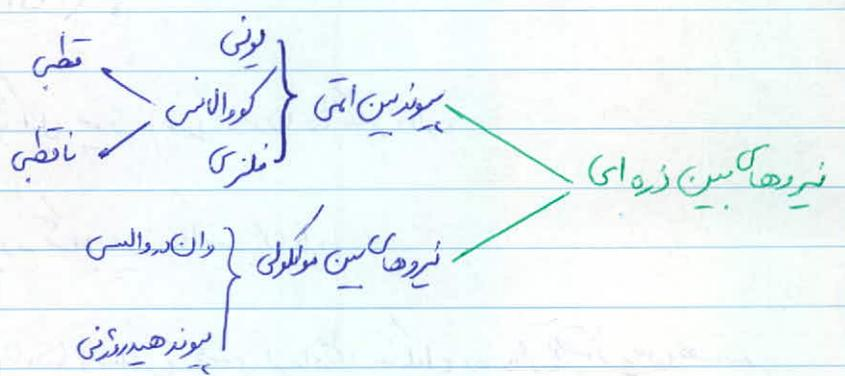 نیروهای بین ذره ای
پیوند بین اتمی
یونی
کووالانسی
قطبی
ناقطبی
فلزی
نیروهای بین مولکولی
وان دروالسی
پیوند هیدروژنی